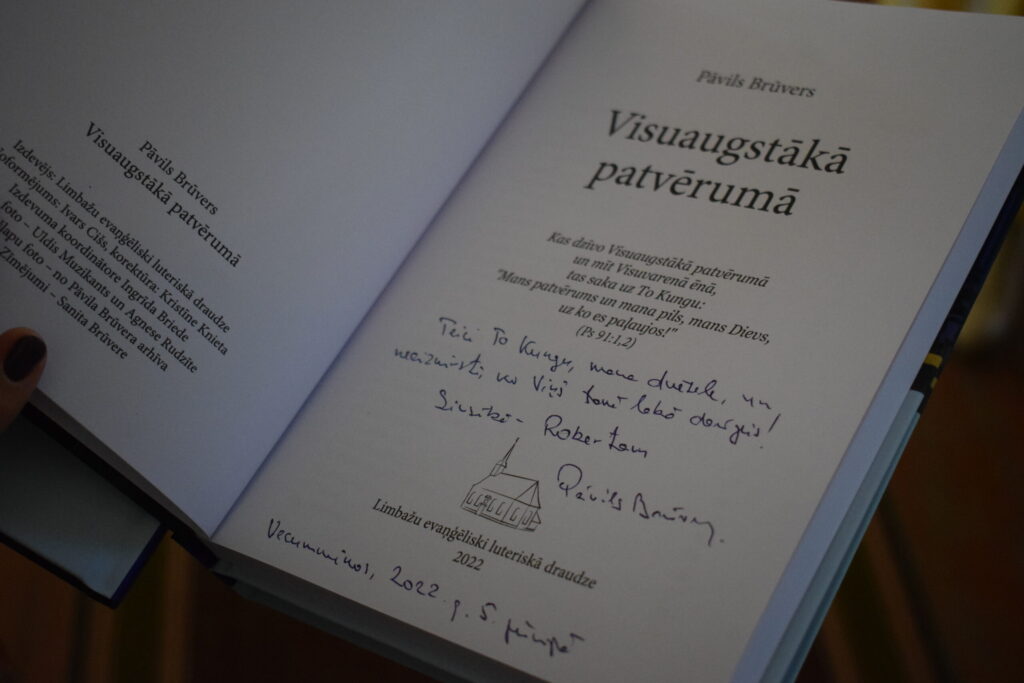 Pāvils Brūvers
Visuaugstākā patvērumā
Izdevējs: Limbažu evaņģēliski luteriskā draudze
noformējums: Ivars Cišs, korektūra: Kristīne Knieta
Izdevuma koordinātore Ingrīda Briede
foto – Uldis Muzikants un Agnese Rudzīte
lapu foto – no Pāvila Brūvera arhīva
Zīmējumi – Sanita Brūvere
Pāvils Brūvers
Visuaugstākā
patvērumā
Kas dzīvo Visuaugstākā patvērumā
un mīt Visuvarenā ēnā,
tas saka uz To Kungu:
"Mans patvērums un mana pils, mans Dievs,
uz ko es paļaujos!"
(Ps 91:1,2)
Teici To Kungu, mana dvēsele, un
neaizmirsti, ko Viņš tev labā darījis!
Robertam
Pāvils Brūvers
Limbažu evaņģēliski luteriskā draudze
2022
Vecumniekos, 2022. g. 5. jūnijā